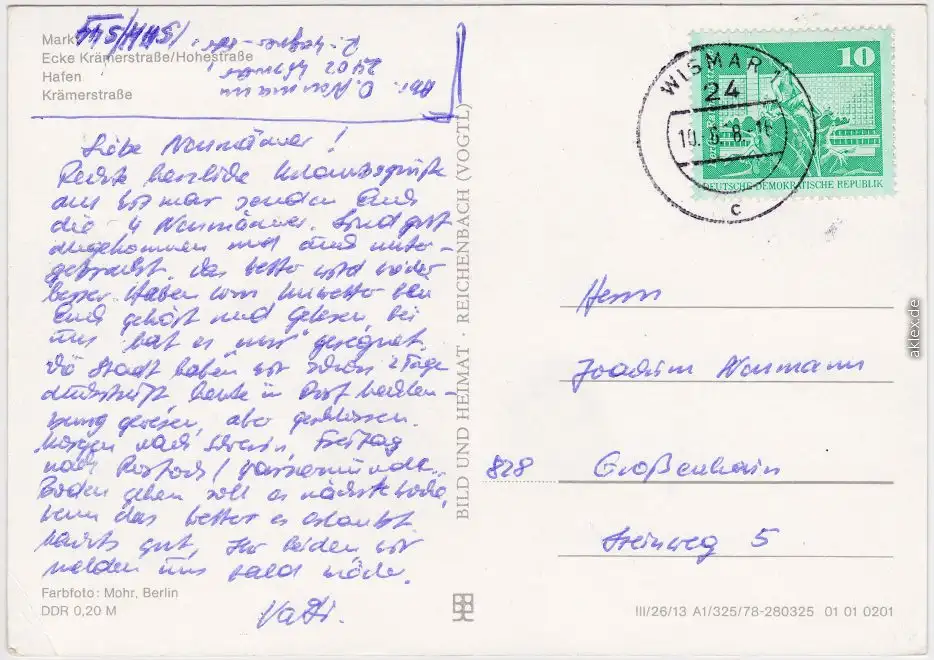 Markt
Ecke Krämerstraße/Hohestraße
Hafen
Krämerstraße
Abs. O. Neumann
2402 Wismar
Liebe Neumänner!
Recht herzliche Urlaubsgrüße
aus Wismar senden Euch
die 4 Neumänner. Sind gut
angekommen und auch unter-
gebracht. Das Wetter wird wieder
besser. Haben vom Unwetter bei
Euch gehört und gelesen, bei
uns hat es "nur" geregnet.
Die Stadt haben wir schon 2 Tage
durchstreift, heute in
gewesen, aber geschlossen.
Morgen nach Schwerin, Freitag
nach Rostock/Warnemünde.
Baden gehen soll es nächste Woche,
wenn das Wetter es erlaubt
Machts gut, Ihr beiden wir
melden uns bald wieder.
Vati.
Farbfoto: Mohr, Berlin
DDR 0,20 M
BILD UND HEIMAT · REICHENBACH (VOGTL)
WISMAR 1
24
c
10
DEUTSCHE DEMOKRATISCHE REPUBLIK
Herrn
Joachim Neumann
828 Großenhain
Steinweg 5
III/26/13 A1/325/78-280325 01 01 0201
aklex.de